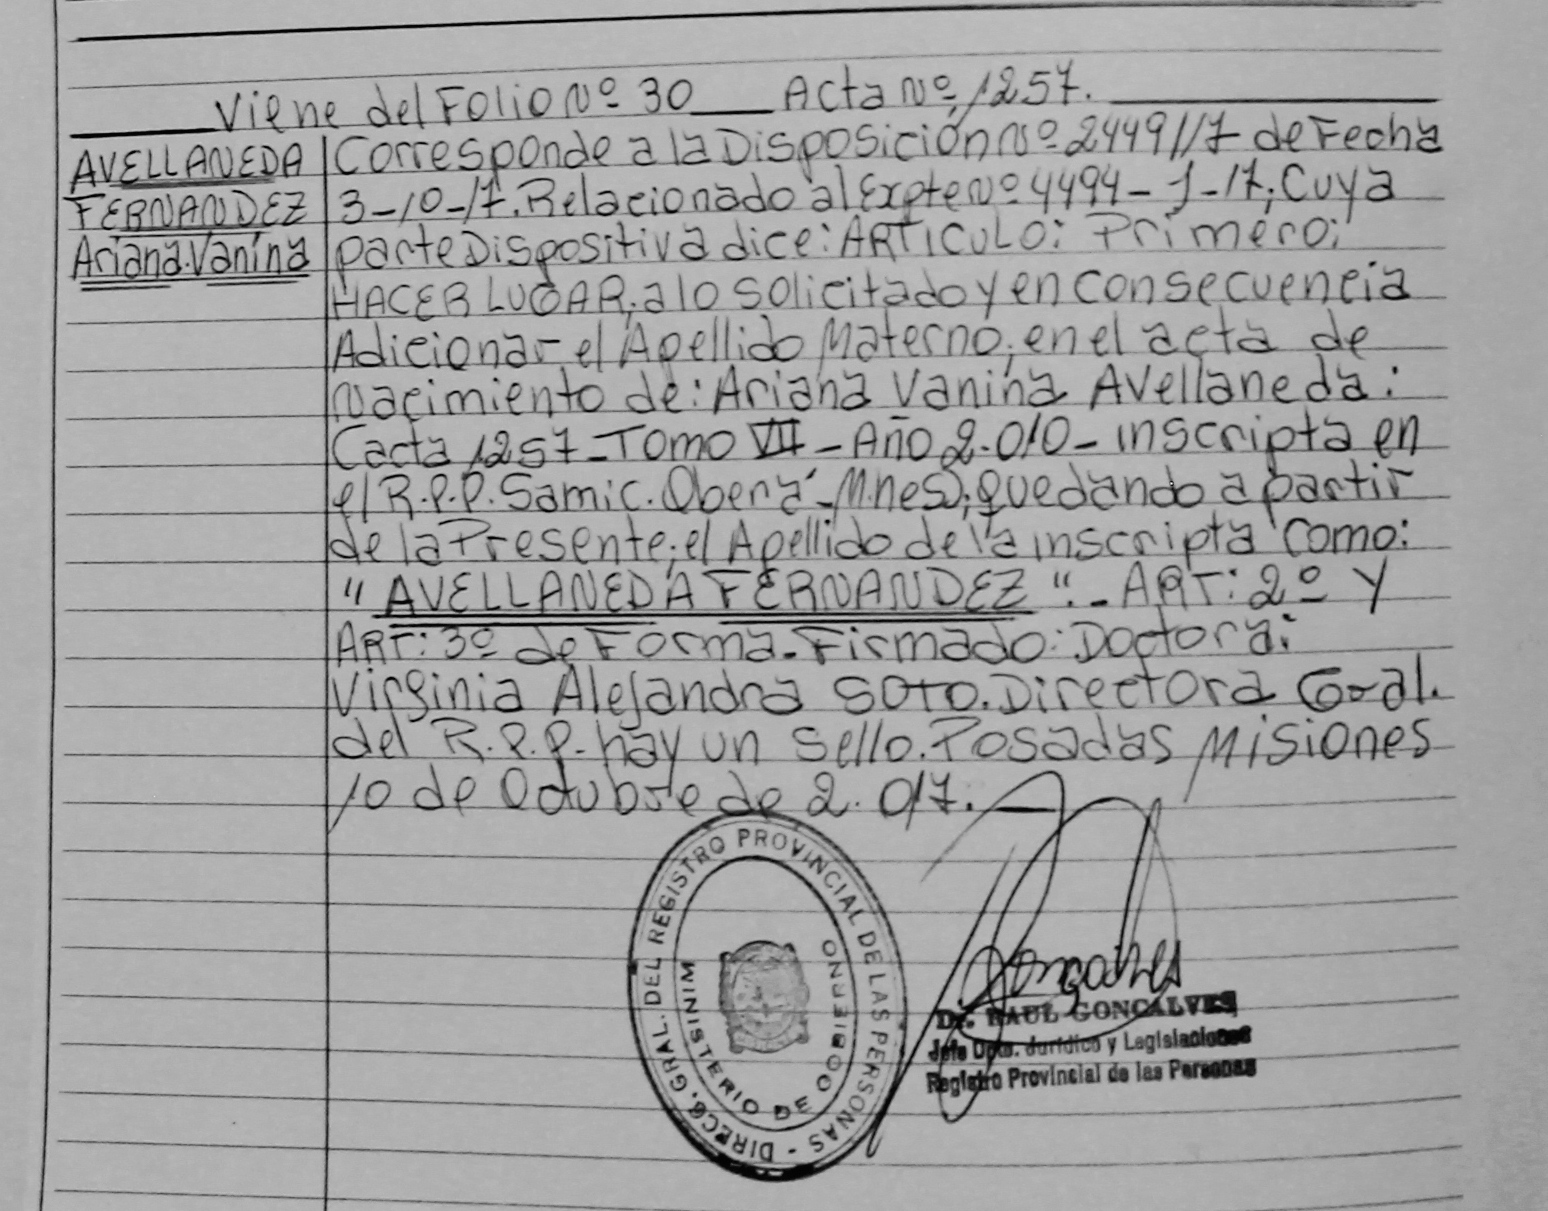 Viene del Folio Nº 30 ___ Acta Nº 1257.
AVELLANEDA
FERNANDEZ
Ariana Vanina
Corresponde a la Disposición Nº 2449/17 de Fecha
3-10-17. Relacionado al Expte Nº 4494-J-17; Cuya
parte Dispositiva dice: ARTICULO: Primero:
HACER LUGAR, a lo solicitado y en Consecuencia
Adicionar el Apellido Materno, en el acta de
Nacimiento de: Ariana Vanina Avellaneda:
(acta 1257-Tomo VII-Año 2.010-inscripta en
el R.P.P. Samic. Oberá-Mnes); quedando a partir
de la Presente, el Apellido de la inscripta Como:
"AVELLANEDA FERNANDEZ".- ART: 2º Y
ART: 3º de Forma. Firmado: Doctora:
Virginia Alejandra SOTO. Directora Gral.
del R.P.P. hay un sello. Posadas Misiones
10 de Octubre de 2.017.
DIRECC. GRAL. DEL REGISTRO PROVINCIAL DE LAS PERSONAS -
MINISTERIO DE GOBIERNO
Gonçalves
Dr. RAUL GONCALVES
Jefe Dpto. Jurídico y Legislaciones
Registro Provincial de las Personas